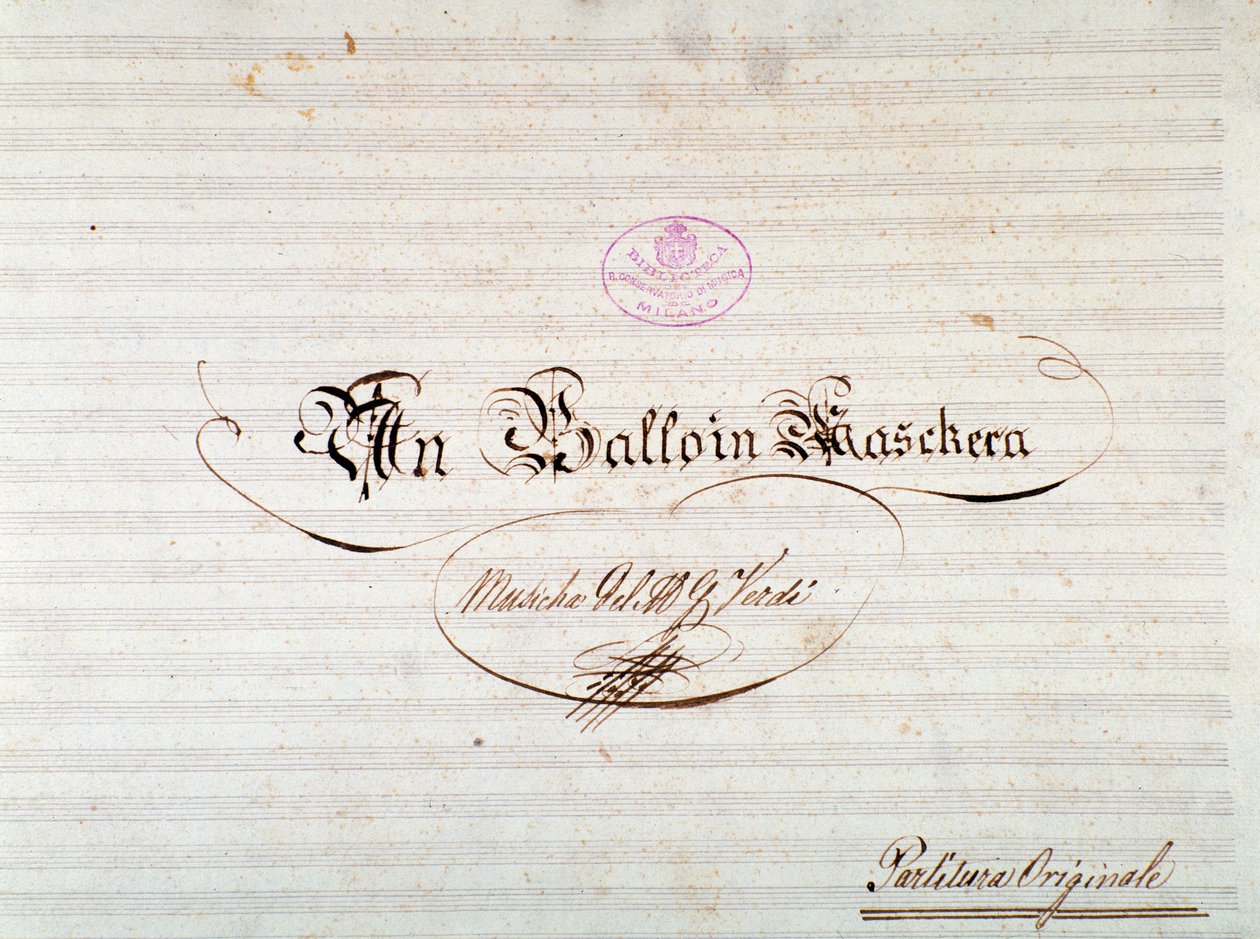 BIBLIOTECA
DEL
R. CONSERVATORIO DI MUSICA
DI
MILANO
Un Ballo in Masckera
Musicha Del M G Verdi
Partitura Originale